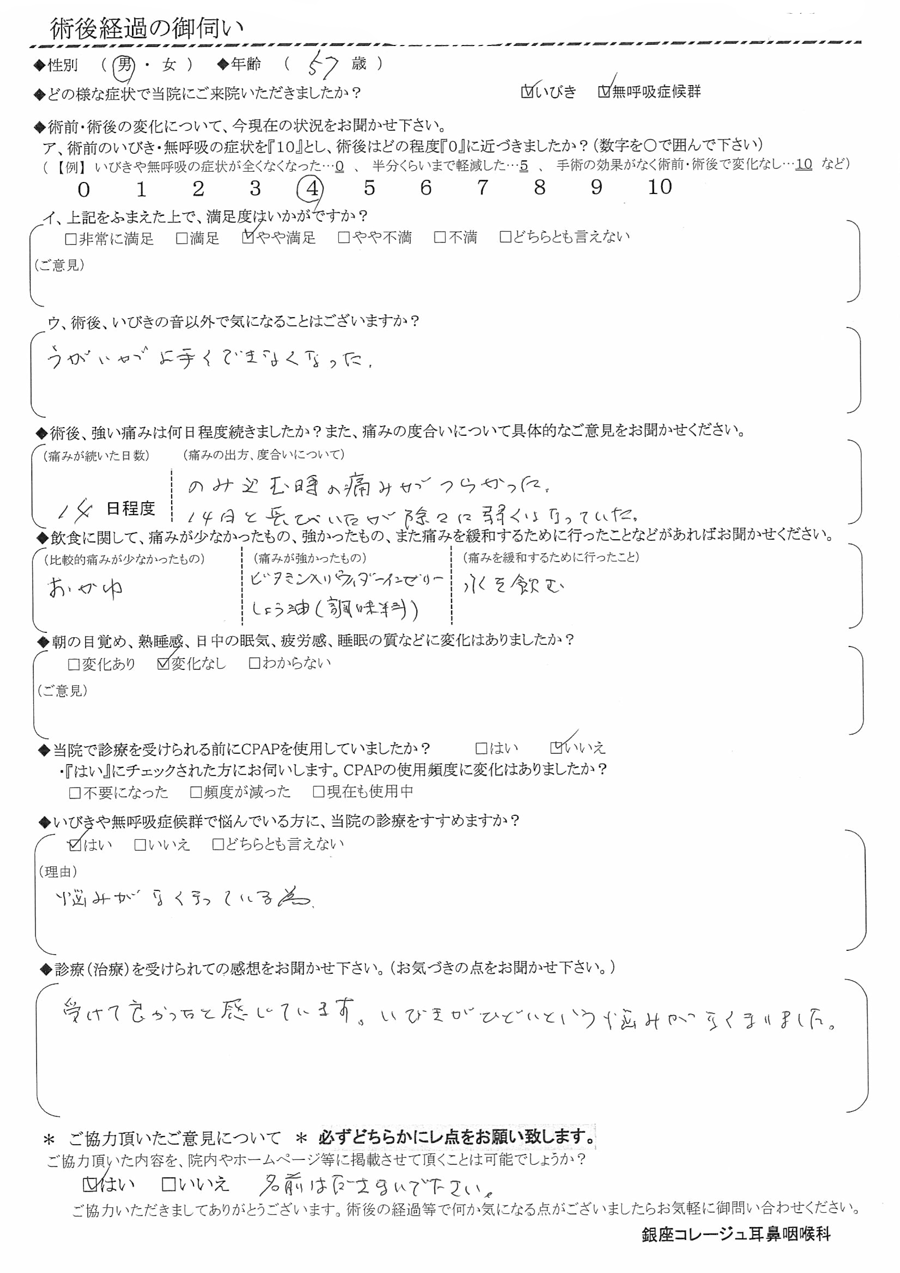 術後経過の御伺い
◆性別 ( 男 ・ 女 ) ◆年齢 ( 57 歳 )
◆どの様な症状で当院にご来院いただきましたか? ☑いびき ☑無呼吸症候群
◆術前・術後の変化について、今現在の状況をお聞かせ下さい。
ア、術前のいびき・無呼吸の症状を『10』とし、術後はどの程度『0』に近づきましたか?(数字を〇で囲んで下さい)
(【例】いびきや無呼吸の症状が全くなくなった…0 、 半分くらいまで軽減した…5 、 手術の効果がなく術前・術後で変化なし…10 など)
0 1 2 3 4 5 6 7 8 9 10
イ、上記をふまえた上で、満足度はいかがですか?
□非常に満足 □満足 ☑やや満足 □やや不満 □不満 □どちらとも言えない
(ご意見)
ウ、術後、いびきの音以外で気になることはございますか?
うがいが上手くできなくなった。
◆術後、強い痛みは何日程度続きましたか?また、痛みの度合いについて具体的なご意見をお聞かせください。
(痛みが続いた日数) (痛みの出方、度合いについて)
のみ込む時の痛みがつらかった。
14 日程度 14日と長びいたが除々に弱くはなっていた。
◆飲食に関して、痛みが少なかったもの、強かったもの、また痛みを緩和するために行ったことなどがあればお聞かせください。
(比較的痛みが少なかったもの) (痛みが強かったもの) (痛みを緩和するために行ったこと)
おかゆ ビタミン入りウィダーインゼリー 水を飲む
しょう油(調味料)
◆朝の目覚め、熟睡感、日中の眠気、疲労感、睡眠の質などに変化はありましたか?
□変化あり ☑変化なし □わからない
(ご意見)
◆当院で診療を受けられる前にCPAPを使用していましたか? □はい ☑いいえ
・『はい』にチェックされた方にお伺いします。CPAPの使用頻度に変化はありましたか?
□不要になった □頻度が減った □現在も使用中
◆いびきや無呼吸症候群で悩んでいる方に、当院の診療をすすめますか?
☑はい □いいえ □どちらとも言えない
(理由)
悩みがなくなっている為。
◆診療(治療)を受けられての感想をお聞かせ下さい。(お気づきの点をお聞かせ下さい。)
受けて良かったと感じています。いびきがひどいという悩みがなくなりました。
＊ ご協力頂いたご意見について ＊ 必ずどちらかにレ点をお願い致します。
ご協力頂いた内容を、院内やホームページ等に掲載させて頂くことは可能でしょうか?
☑はい □いいえ 名前はださないで下さい。
ご協力いただきましてありがとうございます。術後の経過等で何か気になる点がございましたらお気軽に御問い合わせください。
銀座コレージュ耳鼻咽喉科